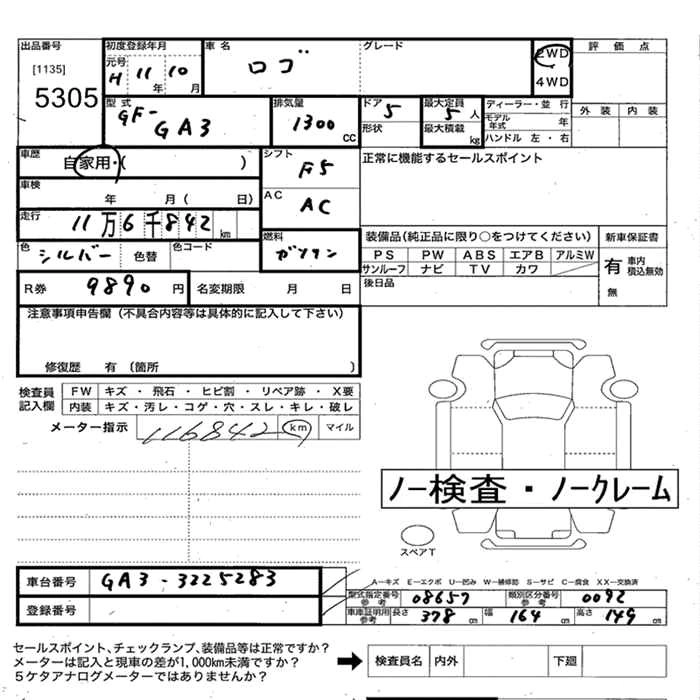 出品番号 [1135] 5305
初度登録年月 元号 H 11 年 10 月
車名 ロゴ
グレード
2WD
4WD
評価点
外装 内装
型式 GF- GA3
排気量 1300 CC
ドア 5
形状
最大定員 5 人
最大積載 kg
ディーラー・並行
モデル年式 年
ハンドル 左・右
車歴 自家用・( )
シフト F5
正常に機能するセールスポイント
車検 年 月 ( 日)
AC AC
走行 11万6千842 km
燃料 ガソリン
色 シルバー 色替 色コード
装備品(純正品に限り○をつけてください)
PS PW ABS エアB アルミW
サンルーフ ナビ TV カワ
後日品
新車保証書
有 車内積込無効
無
R券 9890 円 名変期限 月 日
注意事項申告欄 (不具合内容等は具体的に記入して下さい)
修復歴 有 (箇所 )
検査員記入欄
FW キズ・飛石・ヒビ割・リペア跡・X要
内装 キズ・汚レ・コゲ・穴・スレ・キレ・破レ
メーター指示 116842 km マイル
ノー検査・ノークレーム
スペアT
A−キズ E−エクボ U−凹み W−補修跡 S−サビ C−腐食 XX−交換済
車台番号 GA3-3225283
登録番号
型式指定番号 参考 08657 類別区分番号 参考 0092
車庫証明用 参考 長さ 378 cm 幅 164 cm 高さ 149 cm
セールスポイント、チェックランプ、装備品等は正常ですか?
メーターは記入と現車の差が1,000km未満ですか?
5ケタアナログメーターではありませんか?
検査員名 内外 下廻